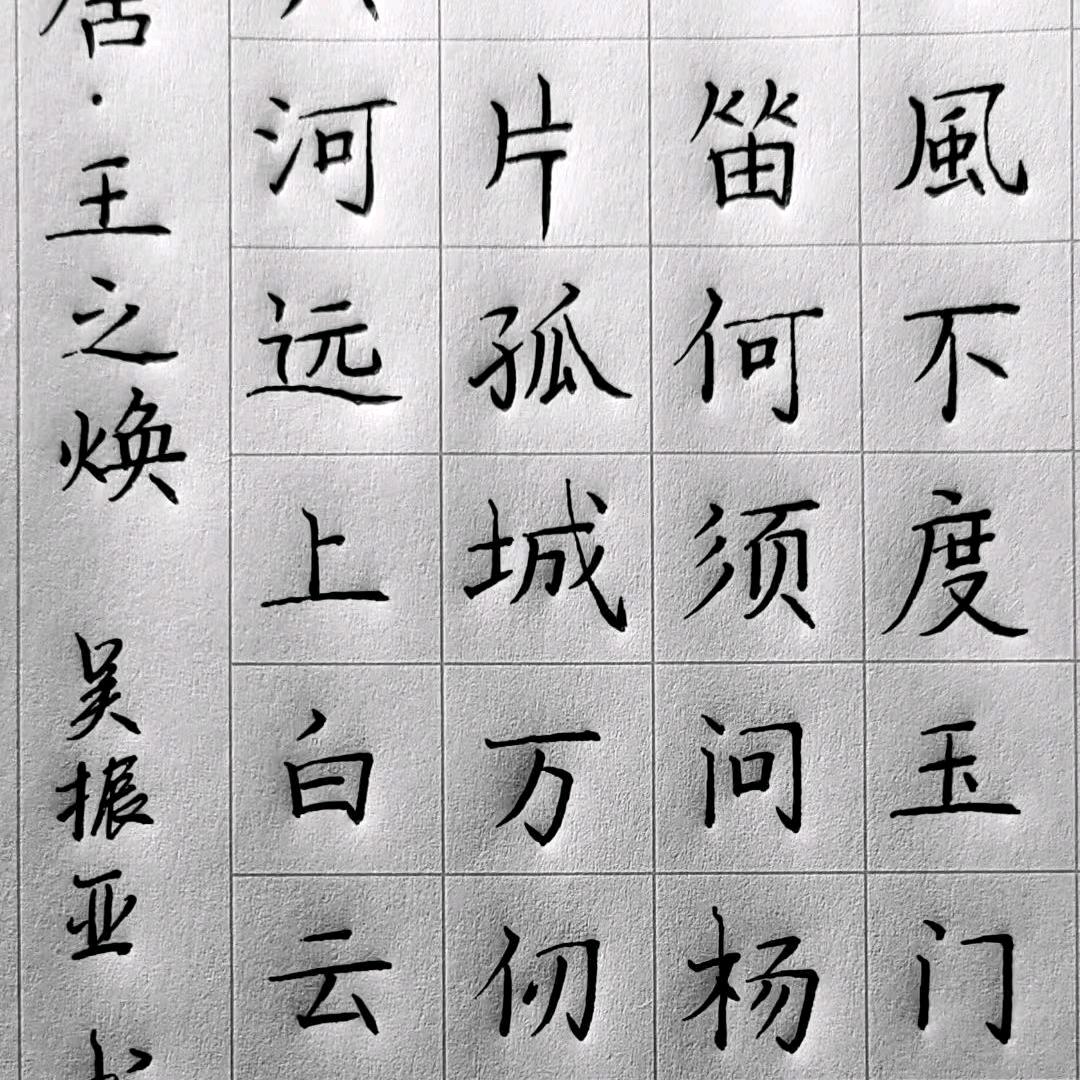 ·王之焕 吴振亚
河远上白云
片孤城万仞
笛何须问杨
風不度玉门